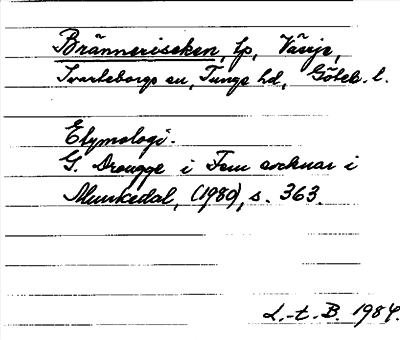 Bränneriseken, lp, Värje,
Svarteborgs sn, Tunge hd, Göteb. l.
Etymologi.
G. Drougge i Fem socknar i
Munkedal, (1980), s. 363.
L.-t. B. 1984.